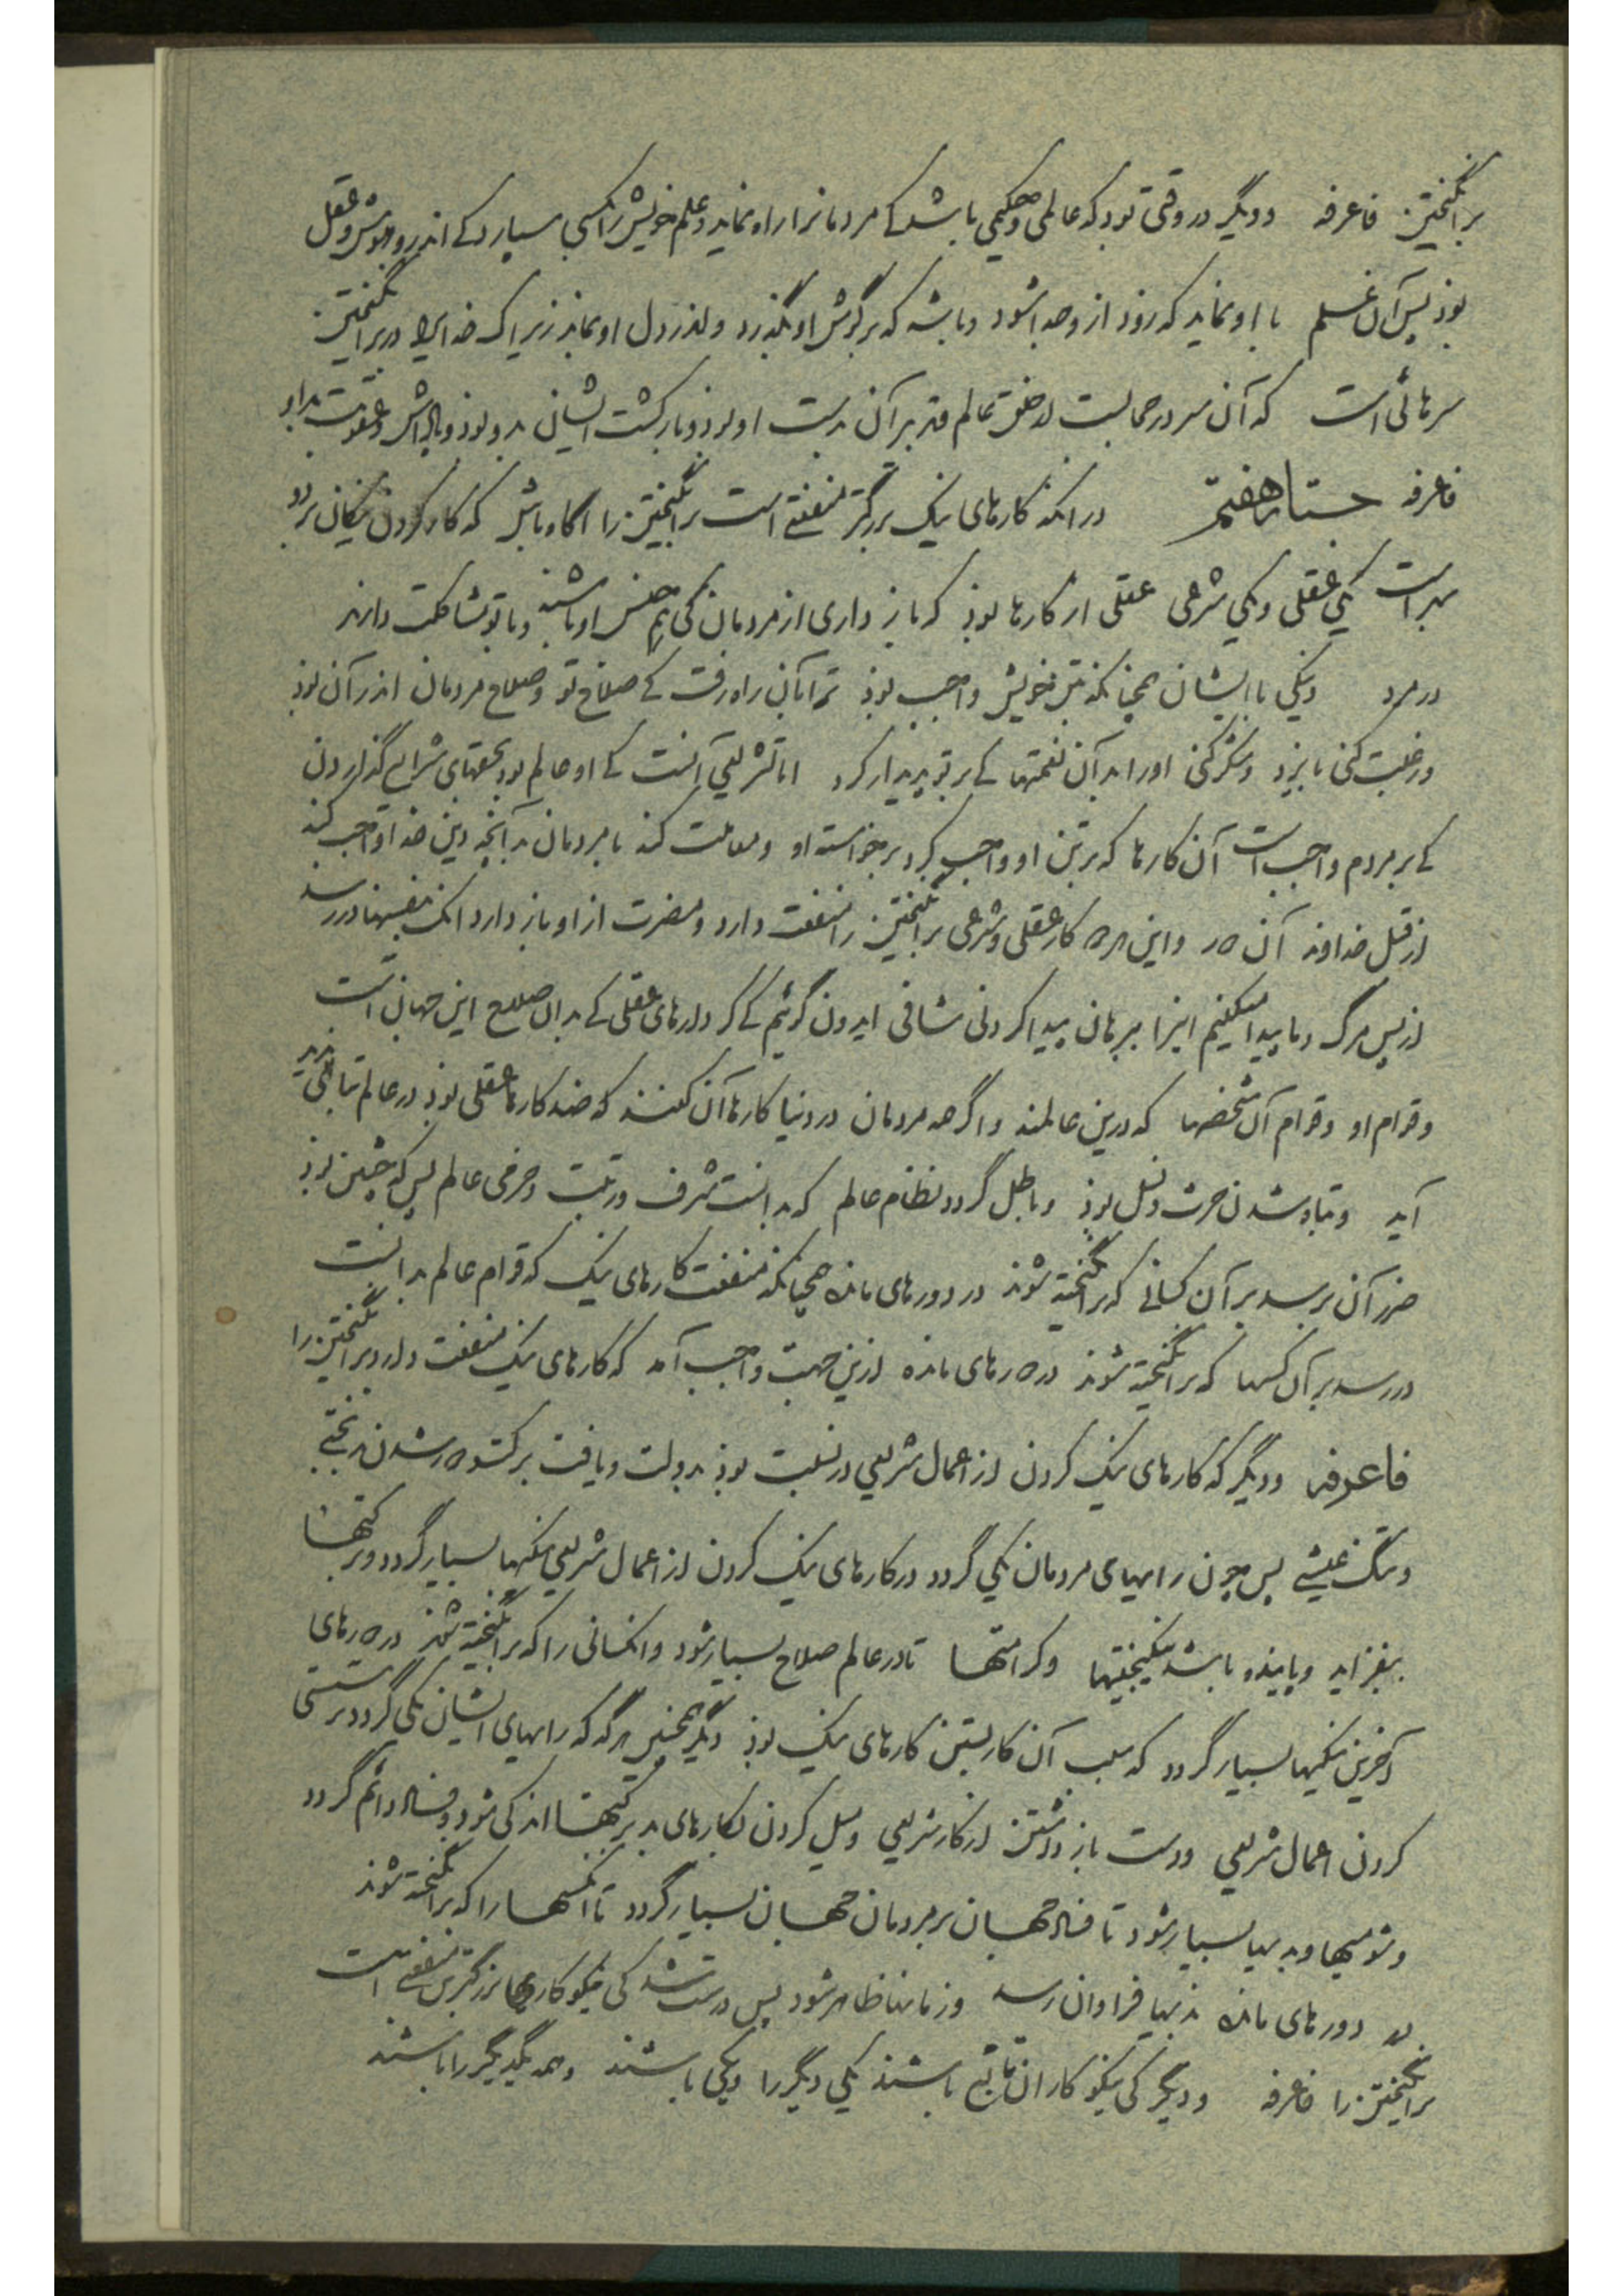 برانگیختن فاعرفه و دیگر در وقتی بود که عالمی و حکیمی باشد کے مردمانرا راه نماید و علم خویش را بکسی بسپارد کے اندرو هوش و عقل
بوذ پس آن علم با او نماید که زود از وجدا شود و باشد که بر گوش او بگذرد و اندر دل او نماید زیراک خدایرا در برانگیختن
سرهائی است که آن سر در حجابست از خلق عالم و تدبیر آن بدست او بوذ و بازگشت ایشان بدو بوذ و پاداش و عقوبت بدو
فاعرفه جستار هفتم در انکه کارهای نیک بزرگتر منفعتی است برانگیختن را آگاه باش که کار کردن نیکان بر دو
بهراست یکی عقلی و یکی شرعی عقلی از کارها بوذ که باز داری از مردمان کی هم جنس او باشند و با تو مشاکلت دارند
در مرد و نیکی با ایشان همچنانکه بتن خویش واجب بوذ ترا بآن راه رفت کے صلاح تو و صلاح مردمان اندر آن بوذ
و رغبت کنی بایزد و شکر کنی او را بدآن نعمتها کے بر تو پدیدار کرد اما شریعی آنست کے او عالم بود بحقهای شرایع گذاردن
کے بر مردم واجبست آن کارها که بر تن او واجب کرد بر خواسته او و معاملت کند با مردمان بدآنچه دین خدا واجب کند
از قبل خداوند آن دور و این هر دو کار عقلی و شرعی برانگیختن را منفعت دارد و مضرت از او باز دارد انک بنفسها در رسد
از پس مرگ و ما پیدا میکنیم اینرا ببرهان پیدا کردنی شافی ایدون گوئیم کے کردارهای عقلی کے بدان صلاح این جهان است
و قوام او و قوام آن شخصها که درین عالمند و اگر همه مردمان در دنیا کارها آن کنند که ضد کارها عقلی بوذ در عالم تباهی پدید
آید و تباه شدن حرث و نسل بوذ و باطل گردد نظام عالم که بدانست شرف و رتبت و خرمی عالم پس که چنین بوذ
ضرر آن برسد بر آن کسانی که برانگیخته شوند در دورهای مانده همچنانکه منفعت کارهای نیک که قوام عالم بدانست
در رسد بر آن کسها که برانگیخته شوند در دورهای مانده ازین جهت واجب آمد که کارهای نیک منفعت دارد برانگیختن را
فاعرفه و دیگر که کارهای نیک کردن از اعمال شریعی در نسبت بوذ بدولت و یافت بر کشوه و رشدن بدبختی
و تنگ عیشی پس چون رایهای مردمان یکی گردد در کارهای نیک کردن از اعمال شریعی نیکیها بسیار گردد و برکتها
بیفزاید و پاینده باشد نیکبختیها و کرامتها تا در عالم صلاح بسیار شود و انکسانی را که برانگیخته شوند در دورهای
آخرین نیکیها بسیار گردد که سبب آن کار بستن کارهای نیک بوذ دیگر همچنین هر گه که رایهای ایشان یکی گردد بر سستی
کردن اعمال شریعی و دست باز داشتن از کار شریعی و میل کردن بکارهای بد برکتها اندکی شود و فساد دائم گردد
و شومیها و بدیها بسیار شود تا فساد جهان بر مردمان جهان بسیار گردد تا انکسها را که برانگیخته شوند
در دورهای مانده بدیها فراوان رسد و زمانها ظاهر شود پس درست شد کی نیکو کاریها بزرگترین منفعتی است
برانگیختن را فاعرفه و دیگر کی نیکو کاران تا باشند یکی دیگر را و یکی باشند و همه یکدیگر را باشند